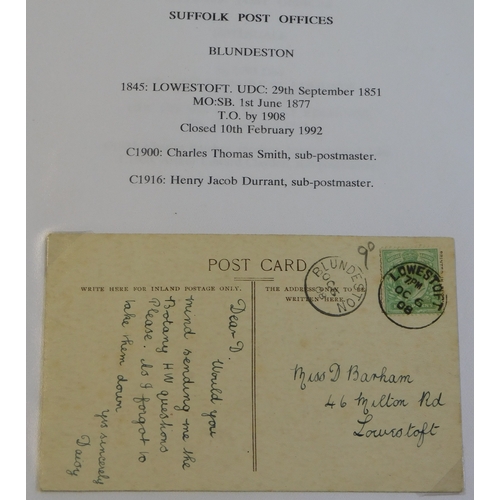 SUFFOLK POST OFFICES
BLUNDESTON
1845: LOWESTOFT. UDC: 29th September 1851
MO:SB. 1st June 1877
T.O. by 1908
Closed 10th February 1992
C1900: Charles Thomas Smith, sub-postmaster.
C1916: Henry Jacob Durrant, sub-postmaster.
POST CARD
WRITE HERE FOR INLAND POSTAGE ONLY.
THE ADDRESS ONLY TO BE
WRITTEN HERE.
Dear D. Would you
mind sending me the
Botany HW questions
Please. As I forgot to
take them down
Yrs sincerely
Daisy
90
BLUNDESTON
OC
LOWESTOFT
7PM
OC 6
08
Miss D Barham
46 Milton Rd
Lowestoft